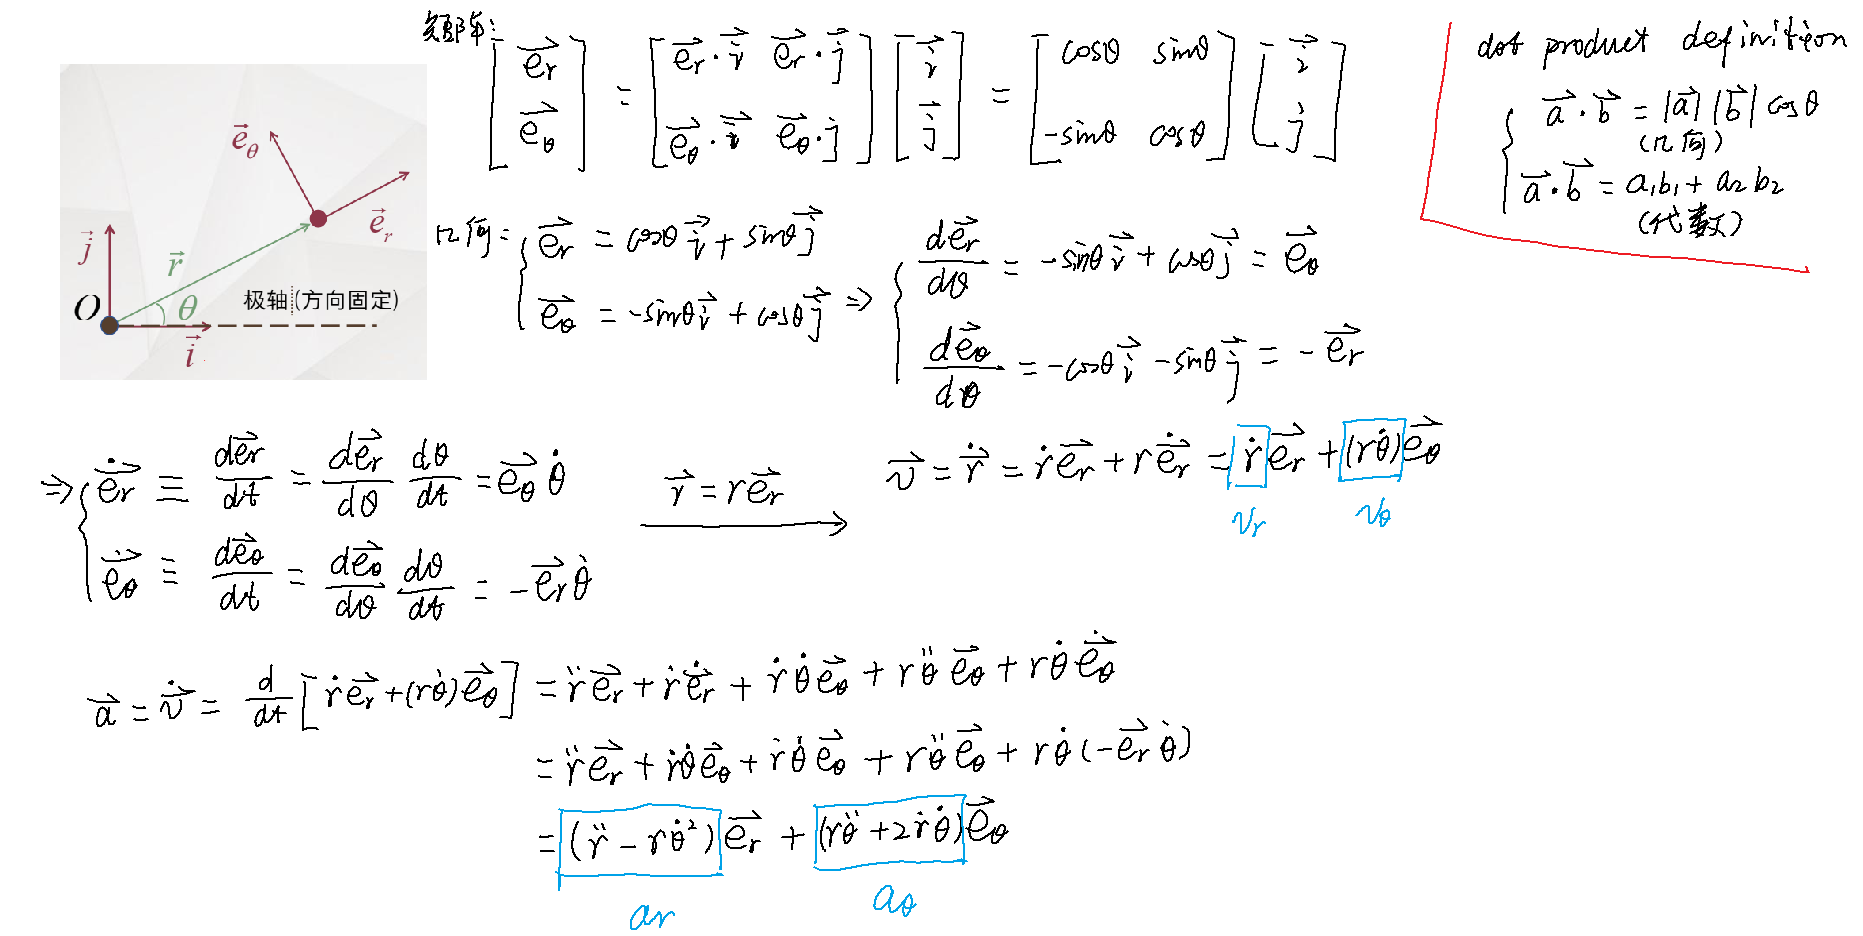 矩阵:
[e⃗r ; e⃗θ] = [e⃗r·i⃗ e⃗r·j⃗ ; e⃗θ·i⃗ e⃗θ·j⃗] [i⃗ ; j⃗] = [cosθ sinθ ; -sinθ cosθ] [i⃗ ; j⃗]
dot product definition
a⃗·b⃗ = |a⃗||b⃗|cosθ
(几何)
a⃗·b⃗ = a₁b₁ + a₂b₂
(代数)
e⃗θ
e⃗r
j⃗
r⃗
O
θ
极轴(方向固定)
i⃗
几何:
{ e⃗r = cosθ i⃗ + sinθ j⃗
e⃗θ = -sinθ i⃗ + cosθ j⃗ ⇒
{ de⃗r/dθ = -sinθ i⃗ + cosθ j⃗ = e⃗θ
de⃗θ/dθ = -cosθ i⃗ - sinθ j⃗ = -e⃗r
⇒ { ė⃗r ≡ de⃗r/dt = de⃗r/dθ dθ/dt = e⃗θ θ̇
ė⃗θ ≡ de⃗θ/dt = de⃗θ/dθ dθ/dt = -e⃗r θ̇
r⃗ = re⃗r
v⃗ = ṙ⃗ = ṙe⃗r + rė⃗r = ṙe⃗r + (rθ̇)e⃗θ
vr vθ
a⃗ = v̇⃗ = d/dt [ṙe⃗r + (rθ̇)e⃗θ] = r̈e⃗r + ṙė⃗r + ṙθ̇e⃗θ + rθ̈e⃗θ + rθ̇ė⃗θ
= r̈e⃗r + ṙθ̇e⃗θ + ṙθ̇e⃗θ + rθ̈e⃗θ + rθ̇(-e⃗rθ̇)
= (r̈ - rθ̇²)e⃗r + (rθ̈ + 2ṙθ̇)e⃗θ
ar aθ